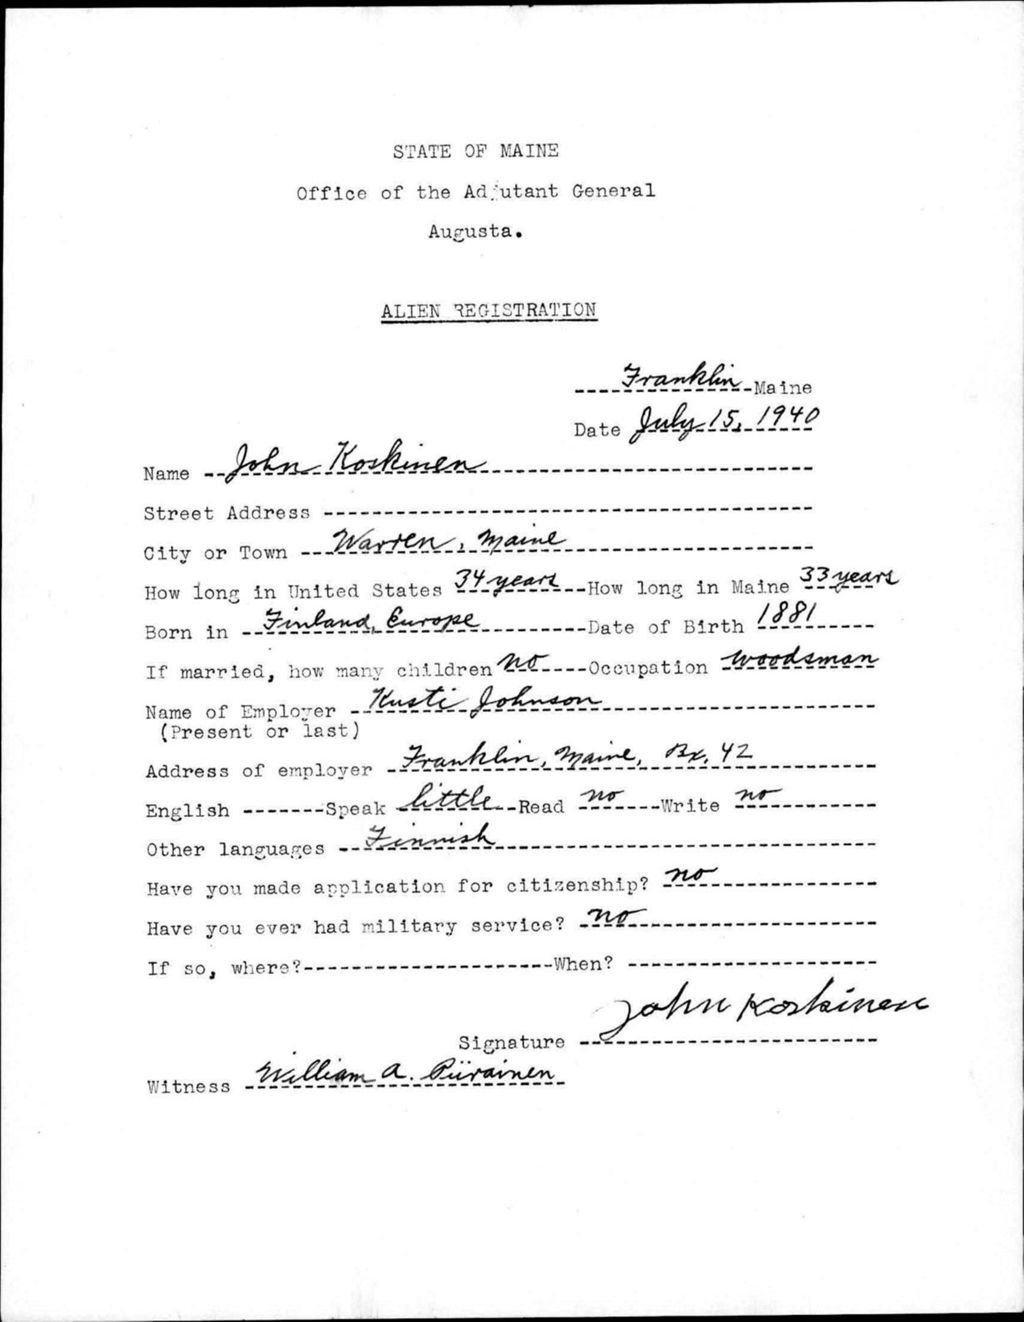 STATE OF MAINE
Office of the Adjutant General
Augusta.
ALIEN REGISTRATION
Franklin Maine
Date July 15, 1940
Name John Koskinen
Street Address
City or Town Warren, Maine
How long in United States 34 years How long in Maine 33 years
Born in Finland, Europe Date of Birth 1881
If married, how many children no Occupation woodsman
Name of Employer Kusti Johnson
(Present or last)
Address of employer Franklin, Maine, Bx, 42
English Speak little Read no Write no
Other languages Finnish
Have you made application for citizenship? no
Have you ever had military service? no
If so, where? When?
John Koskinen
Signature
Witness William A. Piirainen